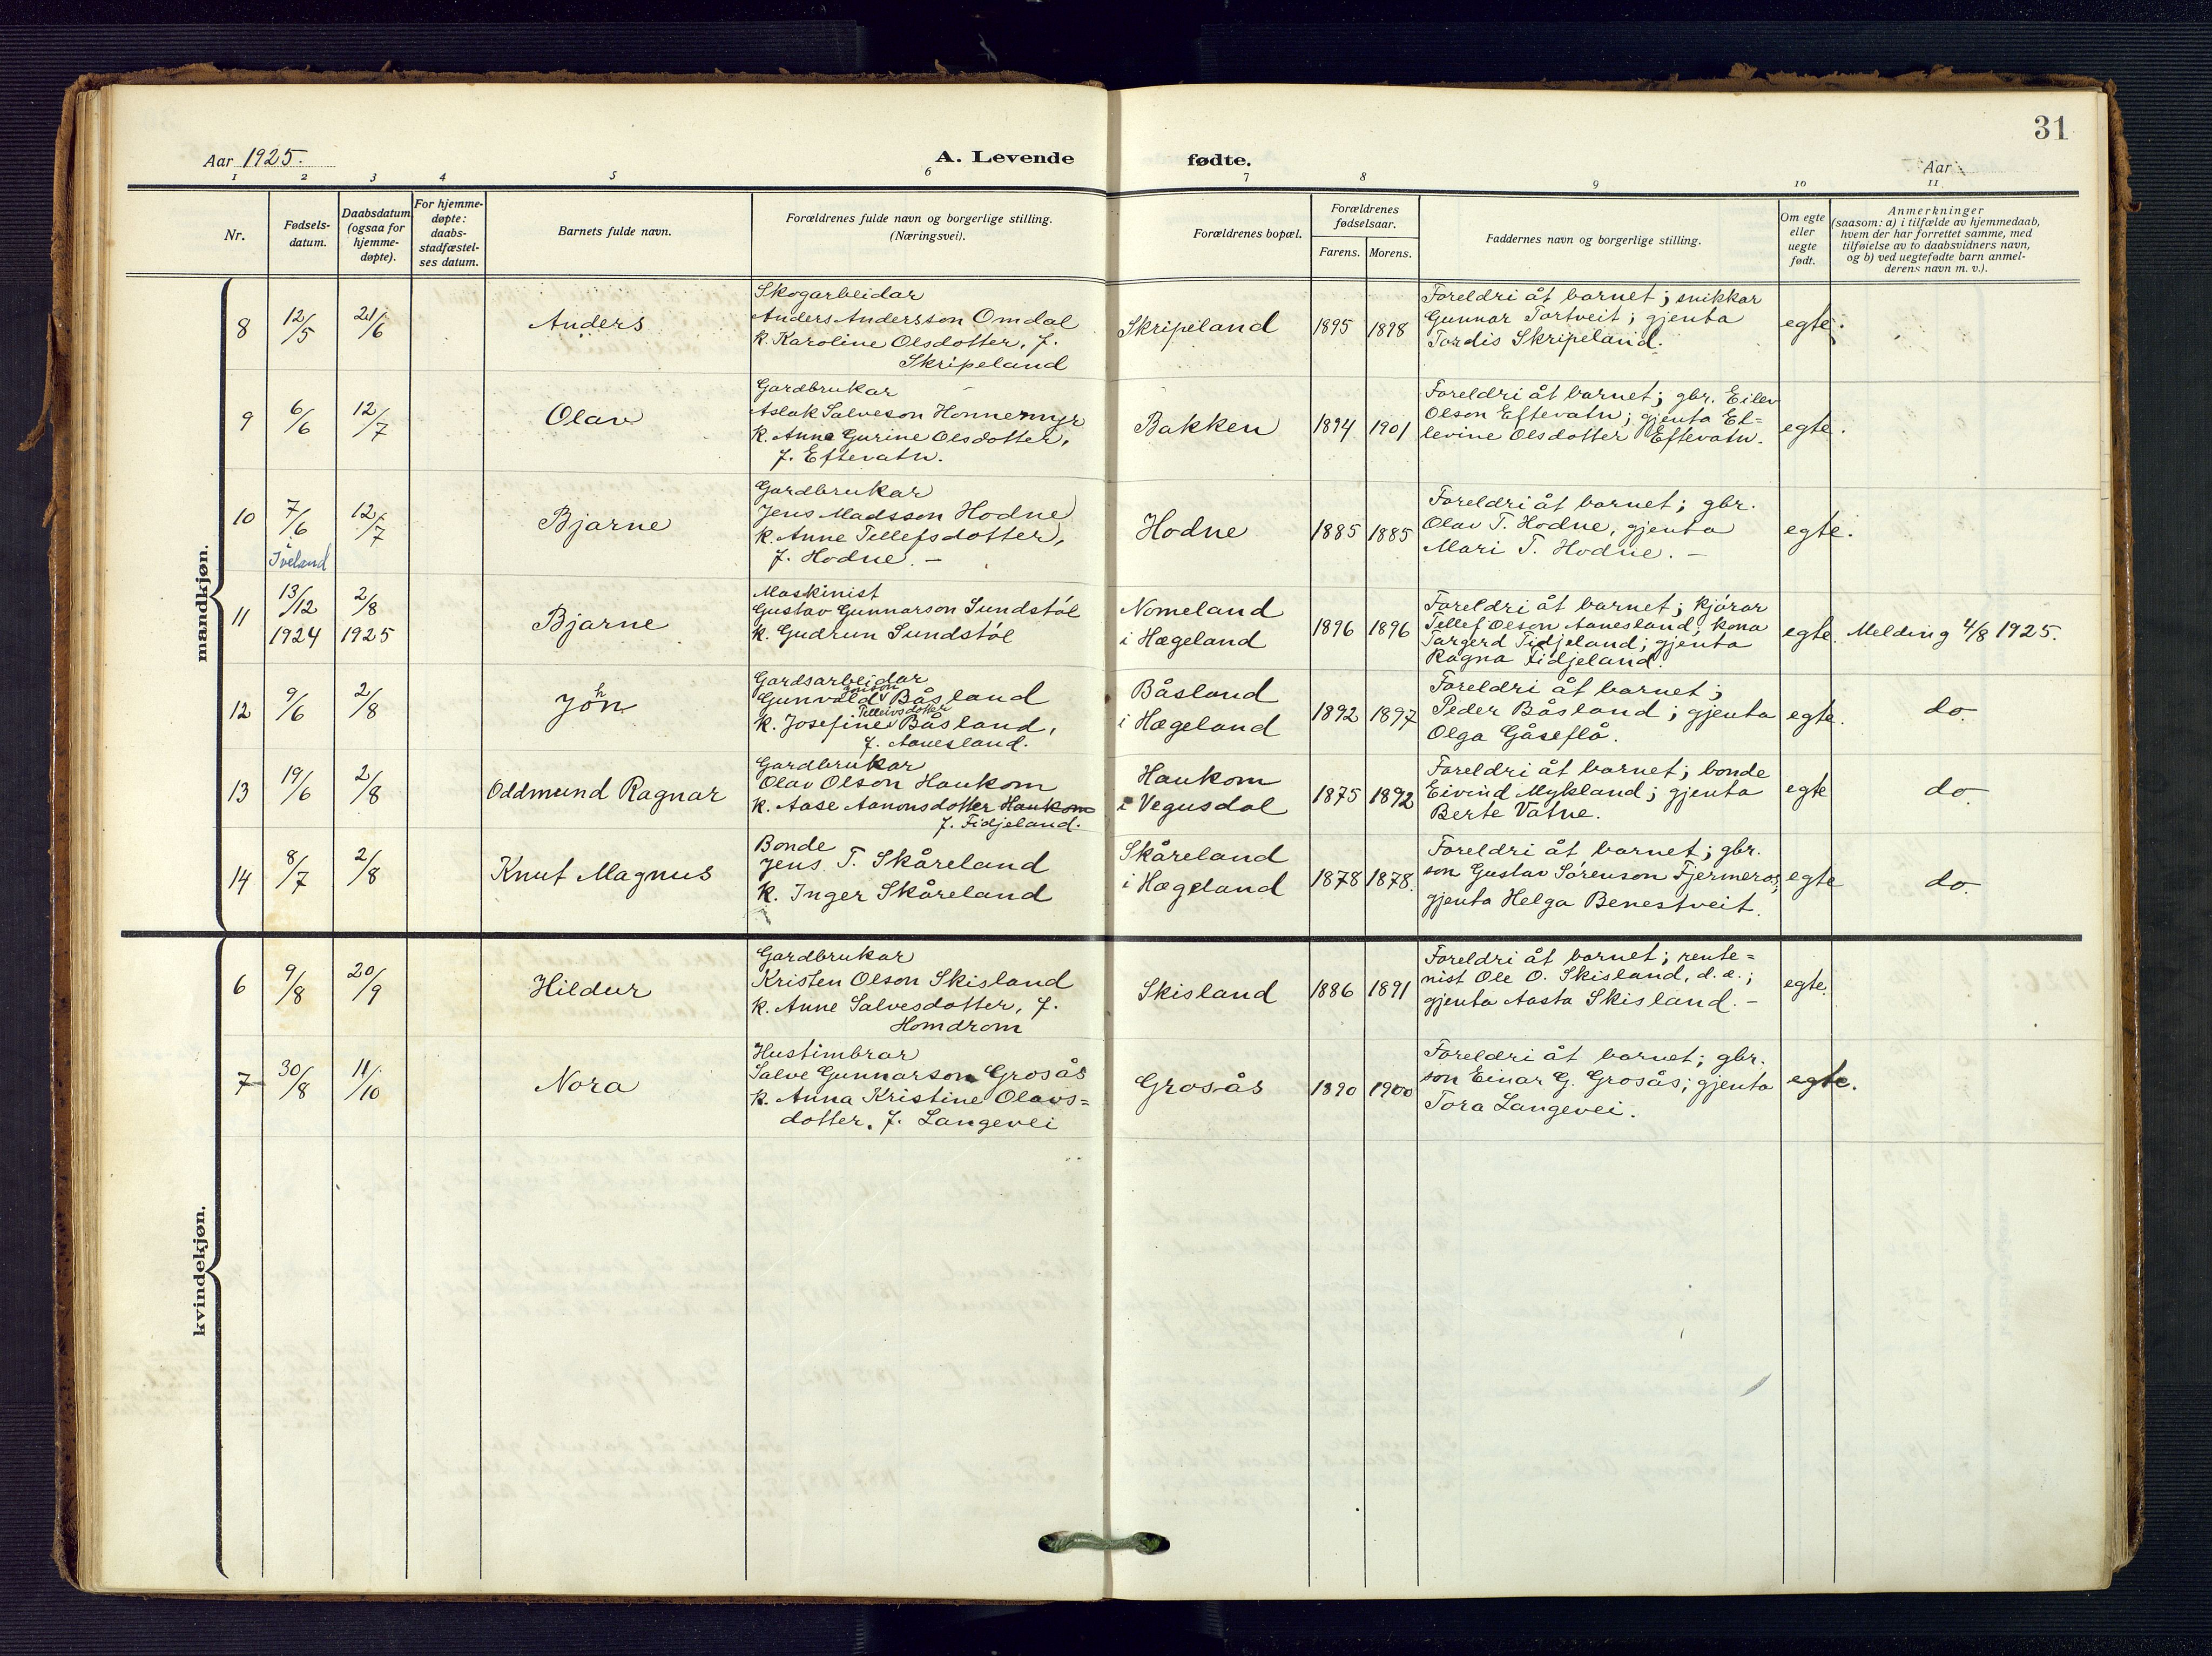 31
Aar 1925.
A. Levende fødte.
Aar
1 2 3 4 5 6 7 8 9 10 11
Nr.
Fødsels-
datum.
Daabsdatum
(ogsaa for
hjemme-
døpte).
For hjemme-
døpte:
daabs-
stadfæstel-
ses datum.
Barnets fulde navn.
Forældrenes fulde navn og borgerlige stilling.
(Næringsvei).
Forældrenes bopæl.
Forældrenes
fødselsaar.
Farens. Morens.
Faddernes navn og borgerlige stilling.
Om egte
eller
uegte
født.
Anmerkninger
(saasom: a) i tilfælde av hjemmedaab,
hvem der har forrettet samme, med
tilføielse av to daabsvidners navn,
og b) ved uegtefødte barn anmel-
derens navn m. v.).
mandkjøn.
8 12/5 21/6 Anders
Skogarbeidar
Anders Andersson Omdal
k. Karoline Olsdotter, f.
Skripeland
Skripeland 1895 1898
Foreldri åt barnet; snikkar
Gunnar Tortveit; gjenta
Tordis Skripeland.
egte.
9 6/6 12/7 Olav
Gardbrukar
Aslak Salveson Honnemyr
k. Anne Gurine Olsdotter,
f. Eftevatn.
Bakken 1894 1901
Foreldri åt barnet; gbr. Eilev
Olson Eftevatn; gjenta El=
levine Olsdotter Eftevatn.
egte.
10 7/6 12/7 Bjarne
i
Iveland
Gardbrukar
Jens Madsson Hodne
k. Anne Tellefsdotter,
f. Hodne. –
Hodne 1885 1885
Foreldri åt barnet; gbr.
Olav T. Hodne, gjenta
Mari T. Hodne. –
egte.
11 13/12 1924 2/8 1925 Bjarne
Maskinist
Gustav Gunnarson Sundstøl
k. Gudrun Sundstøl
Nomeland
i Hægeland
1896 1896
Foreldri åt barnet; kjørar
Tellef Olson Aanesland; kona
Targerd Fidjeland; gjenta
Ragna Fidjeland.
egte. Melding 4/8 1925.
12 9/6 2/8 John
Gardsarbeidar
Gunvald Jonson Båsland
k. Josefine Telleivsdotter Båsland,
f. Aanesland.
Båsland
i Hægeland
1892 1897
Foreldri åt barnet;
Peder Båsland; gjenta
Olga Gåseflå.
egte. do.
13 19/6 2/8 Oddmund Ragnar
Gardbrukar
Olav Olson Haukom
k. Aase Aanonsdotter Haukom
f. Fidjeland.
Haukom
i Vegusdal
1875 1892
Foreldri åt barnet; bonde
Eivind Mykland; gjenta
Berte Vatne.
egte do.
14 8/7 2/8 Knut Magnus
Bonde
Jens T. Skåreland
k. Inger Skåreland
Skåreland
i Hægeland
1878 1878.
Foreldri åt barnet; gbr.
son Gustav Sørenson Fjermeros;
gjenta Helga Benestveit.
egte do.
kvindekjøn.
6 9/8 20/9 Hildur
Gardbrukar
Kristen Olson Skisland
k. Anne Salvesdotter, f.
Homdrom
Skisland 1886 1891
Foreldri åt barnet; rente=
nist Ole O. Skisland, d. e.;
gjenta Aasta Skisland. –
egte.
7 30/8 11/10 Nora
Hustimbrar
Salve Gunnarson Grosås
k. Anna Kristine Olavs=
dotter, f. Langevei
Grosås 1890 1900
Foreldri åt barnet; gbr.
son Einar G. Grosås; gjenta
Tora Langevei.
egte.